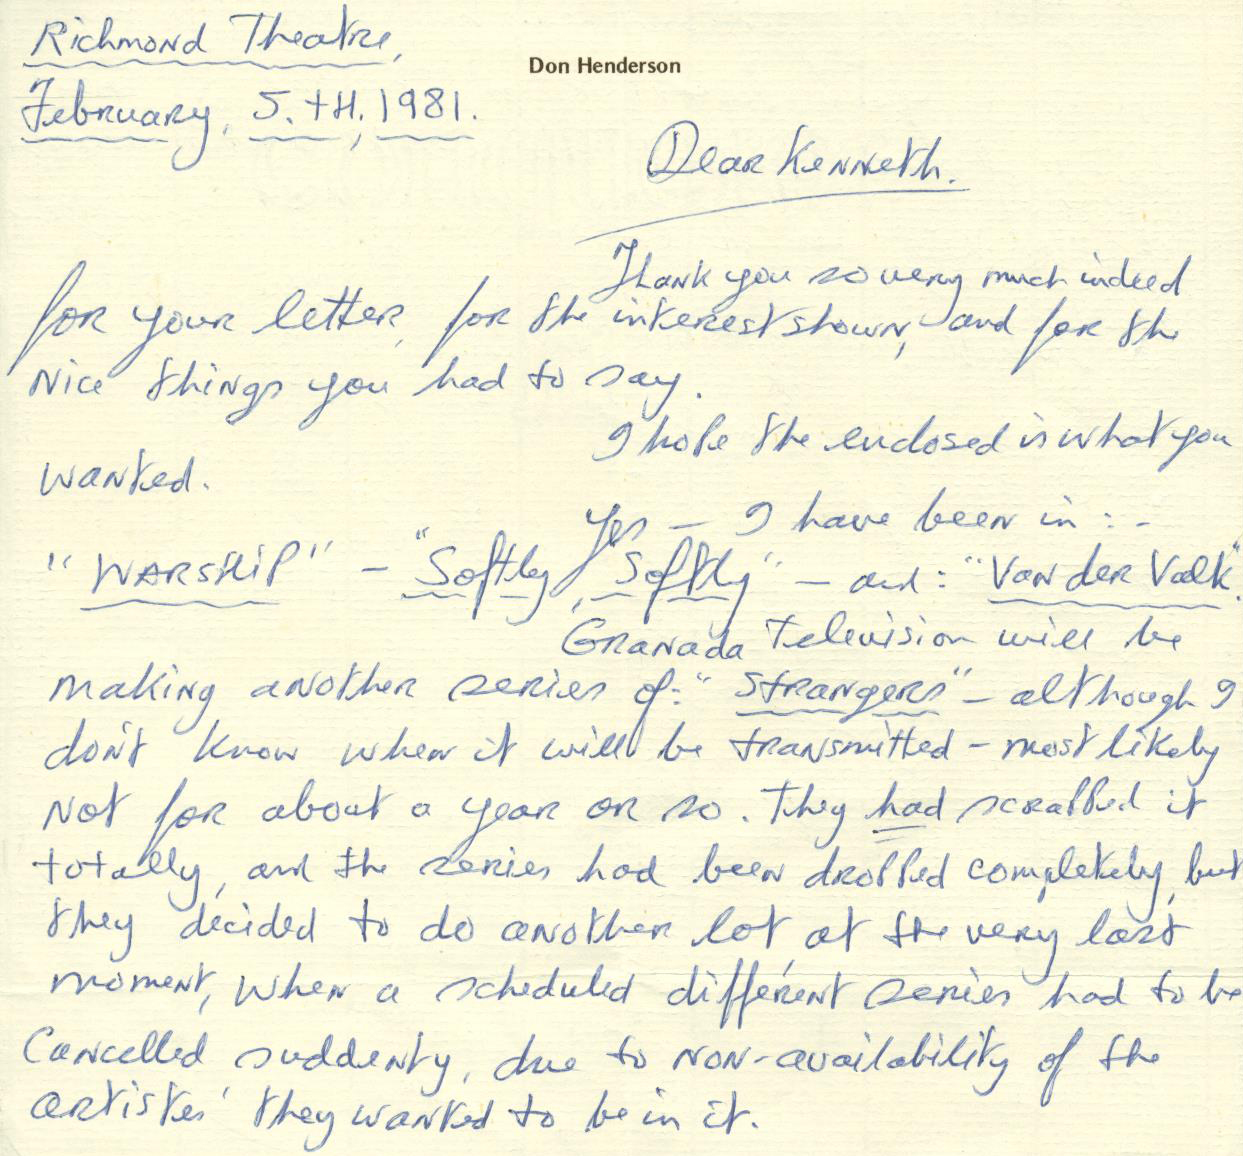 Richmond Theatre,
Don Henderson
February, 5.TH, 1981.
Dear Kenneth.
Thank you so very much indeed
for your letter, for the interest shown, and for the
nice things you had to say.
I hope the enclosed is what you
wanted.
Yes – I have been in : -
"WARSHIP" – "Softly, Softly" – and: "Van der Valk".
Granada Television will be
making another series of: "Strangers" – although I
don't know when it will be transmitted – most likely
not for about a year or so. They had scrapped it
totally, and the series had been dropped completely, but
they decided to do another lot at the very last
moment, when a scheduled different series had to be
cancelled suddenly, due to non-availability of the
artistes' they wanted to be in it.